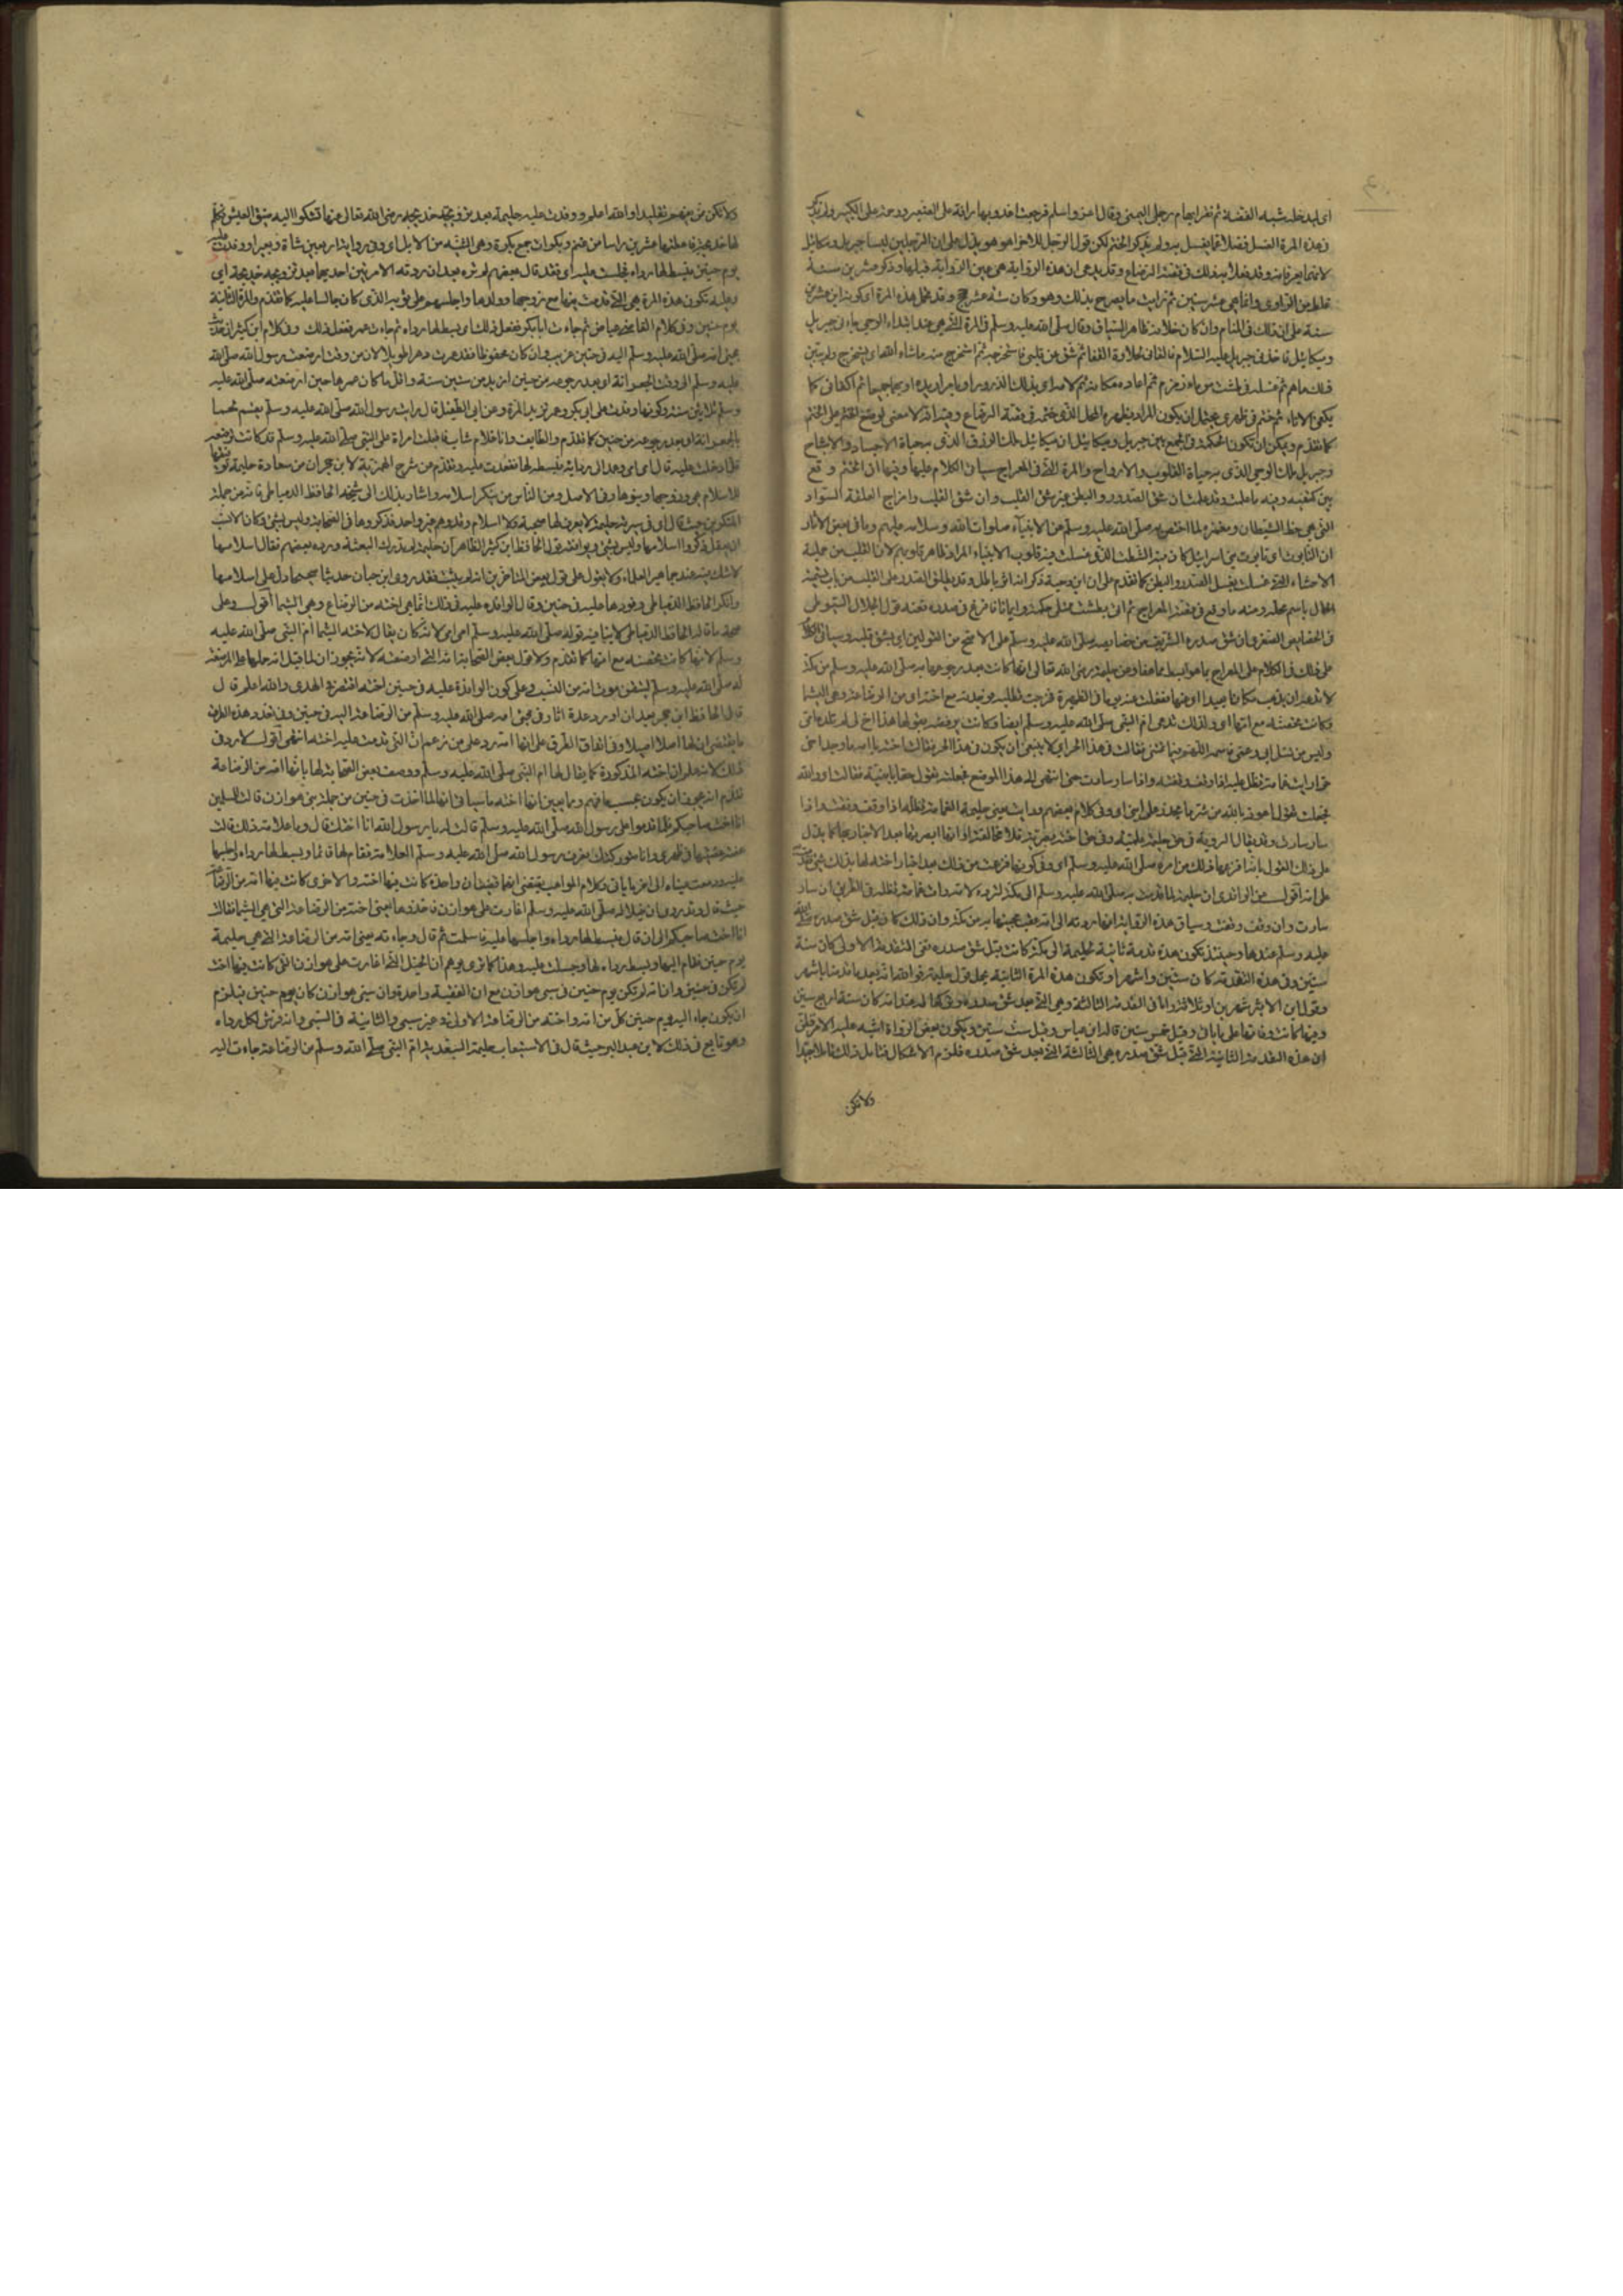 اي ليدخله شبه الفضة ثم نقر ابهام رجلي اليمنى وقال اغد واسلم فرجعت اغدو بها رافة على الصغير ورحمة على الكبير ولم يذكر
في هذه المرة الغسل فضلا عما يغسل به ولم يذكر الختم لكن قول الرجل للاخر اهو هو يدل على ان الرجلين ليسا جبريل وميكائيل
لانهما يعرفانه وقد فعلا به ذلك في قصة الرضاع وقد يدعى ان هذه الرواية هي عين الرواية قبلها وذكر عشرين سنة
غلط من الراوي وانما هي عشر سنين ثم رايت ما يصرح بذلك وهو وكان سنه عشر حجج وقد تحمل هذه المرة اي كونه ابن عشرين
سنة على ان ذلك في المنام وان كان خلاف ظاهر السياق وقال صلى الله عليه وسلم في المرة التي هي عند ابتداء الوحي جاءني جبريل
وميكائيل فاخذني جبريل عليه السلام فالقاني لحلاوة القفا ثم شق عن قلبي فاستخرجه ثم استخرج منه ما شاء الله ان يستخرج ولم يبين
ذلك ما هو ثم غسله في طشت من ماء زمزم ثم اعاده مكانه ثم لامه
يكفى الاناء ثم ختم في ظهري يحتمل ان يكون المراد بظهره المحل الذي ختمه في قصة الرضاع وفيه انه لا معنى لوضع الختم على الختم
كما تقدم ويمكن ان تكون الحكمة في الجمع بين جبريل وميكائيل ان ميكائيل ملك الرزق الذي به حياة الاجساد والاشباح
وجبريل ملك الوحي الذي به حياة القلوب والارواح والمرة التي في المعراج سياتي الكلام عليها وفيها ان الختم وقع
بين كتفيه وفيه ما علمت وقد علمت ان شق الصدر والبطن غير شق القلب وان شق القلب واخراج العلقة السوداء
التي هي حظ الشيطان ومغمزه لما اختص به صلى الله عليه وسلم عن الانبياء صلوات الله وسلامه عليهم وما في بعض الآثار
ان التابوت اي تابوت بني اسرائيل كان فيه الطشت الذي غسلت فيه قلوب الانبياء المراد ظاهر قلوبهم لان القلب من جملة
الاحشاء التي غسلت بغسل الصدر والبطن كما تقدم على ان ابن دحية ذكر انه اثر باطل وقد يطلق الصدر على القلب من باب تسمية
الحال باسم محله ومنه ما وقع في قصة المعراج ثم اتى بطشت ممتلئ حكمة وايمانا فافرغ في صدره ومنه قول الجلال السيوطي
في الخصائص الصغرى وان شق صدره الشريف من خصائصه صلى الله عليه وسلم على الاصح من القولين اي بشق قلبه وسياتي الكلام
على ذلك في الكلام على المعراج بما هو ابسط مما هنا وعن حليمة رضي الله تعالى عنها انها كانت بعد رجوعها به صلى الله عليه وسلم من مكة
لا تدعه ان يذهب مكانا بعيدا اي عنها فغفلت عنه يوما في الظهيرة فخرجت تطلبه فوجدته مع اخته اي من الرضاعة وهي الشيما
وكانت تحضنه مع امها اي ولذلك تدعى ام النبي صلى الله عليه وسلم ايضا وكانت ترقصه بقولها هذا اخ لي لم تلده امي
وليس من نسل ابي وعمي فانمه اللهم فيما تنمي فقالت في هذا الحر اي لا ينبغي ان يكون في هذا الحر فقالت اخته يا امه ما وجد اخي
حرا رايت غمامة تظلل عليه اذا وقف وقفت واذا سار سارت حتى انتهى الى هذا الموضع فجعلت تقول احقا يا بنية فقالت اي والله
فجعلت تقول اعوذ بالله من شر ما نحذر على ابني اي وفي كلام بعضهم ورات يعني حليمة الغمامة تظلله اذا وقف وقفت واذا
سار سارت
على ذلك القول بانها افزعها ذلك من امره صلى الله عليه وسلم
على انه اقول عن الواقدي ان حليمة لما قدمت به صلى الله عليه وسلم الى مكة لترده لامه رات غمامة تظله في الطريق ان سار
سارت وان وقف وقفت وسياق هذه الرواية
عليه وسلم عندها وحينئذ تكون هذه قدمة ثانية لحليمة الى مكة كانت قبل شق صدره
سنتين وفي هذه القدمة كان سنتين واشهر او تكون هذه المرة الثانية محمل قول حليمة فوالله انه بعد ما قدمنا باشهر
وقول ابن الاثير شهرين او ثلاثة واما في القدمة الثالثة وهي التي بعد شق صدره وتركها له عند امه كان سنه اربع سنين
وفيها كانت وفاتها على ما ياتي وقيل خمس سنين قاله ابن عباس وقيل ست سنين ويكون بعض الرواة اشتبه عليه الامر فظن
ان هذه القدمة الثانية التي قبل شق صدره هي الثالثة التي بعد شق صدره فلزم الاشكال فتامل ذلك تاملا جيدا
ولا تكن
ولا تكن ممن يفهم تقليدا والله اعلم ووفدت عليه حليمة بعد تزوجه خديجة رضي الله تعالى عنها تشكوا اليه ضيق العيش فكلم
لها خديجة فاعطتها عشرين راسا من غنم وبكرات جمع بكرة وهي الثنية من الابل اي وفي رواية اربعين شاة وبعيرا ووفدت عليه
يوم حنين فبسط لها رداءه فجلست عليه اي فقد قال بعضهم لم تره بعد ان ردته الا مرتين احديهما بعد تزوجه خديجة اي
وعليه تكون هذه المرة هي التي قدمت فيها مع زوجها وولدها واجلسهم على ثوبه الذي كان جالسا عليه كما تقدم والمرة الثانية
يوم حنين وفي كلام القاضي عياض ثم جاءت ابا بكر ففعل ذلك اي بسط لها رداءه ثم جاءت عمر ففعل ذلك وفي كلام ابن كثير ان حديث
مجيء امه صلى الله عليه وسلم اليه في حنين غريب وان كان محفوظا فقد عمرت دهرا طويلا لان من وقت ارضعت رسول الله صلى الله
عليه وسلم الى وقت الجعرانة اي بعد رجوعه من حنين ازيد من ستين سنة واقل ما كان عمرها حين ارضعته صلى الله عليه
وسلم ثلاثين سنة وكونها وفدت على ابي بكر وعمر تزيد المدة وعن ابي الطفيل قال رايت رسول الله صلى الله عليه وسلم يقسم لحما
بالجعرانة اي بعد رجوعه من حنين كما تقدم والطائف وانا غلام شاب فاقبلت امراة على النبي صلى الله عليه وسلم قد كانت ترضعه
فلما دخلت عليه قال امي امي وعمد الى ردائه فبسطه لها فقعدت عليه وتقدم عن شرح الهمزية لابن حجر ان من سعادة حليمة توفيقها
للاسلام هي وزوجها وبنوها وفي الاصل ومن الناس من ينكر اسلامها واشار بذلك الى شيخه الحافظ الدمياطي فانه من جملة
المنكرين حيث قال اي في سيرته حليمة لا يعرف لها صحبة ولا اسلام وقد وهم غير واحد فذكروها في الصحابة وليس بشيء وكان الانسب
ان يقول ذكروا اسلامها وليس بشيء ويوافقه قول الحافظ ابن كثير الظاهر ان حليمة لم تدرك البعثة ورده بعضهم فقال اسلامها
لا شك فيه عند جماهير العلماء ولا يعول على قول بعض المتاخرين انه لم يثبت فقد روى ابن حبان حديثا صحيحا دل على اسلامها
وانكر الحافظ الدمياطي وفودها عليه في حنين وقال الوافدة عليه في ذلك انما هي اخته من الرضاع وهي الشيما اقول وعلى
صحة ما قاله الحافظ الدمياطي لا ينافيه قوله صلى الله عليه وسلم امي امي لانه كان يقال لاخته الشيما ام النبي صلى الله عليه
وسلم لانها كانت تحضنه مع امها كما تقدم ولا قول بعض الصحابة امه التي ارضعته لانه يجوز ان لما قيل انه حملها على المرضعة
له صلى الله عليه وسلم ليتيقن موت امه من النسب وعلى كون الوافدة عليه في حنين اخته اقتصر في الهدى والله اعلم قال
قال الحافظ ابن حجر بعد ان اورد عدة آثار في مجيء امه صلى الله عليه وسلم من الرضاعة اليه في حنين وفي تعدد هذه الطرق
ما يقتضي ان لها اصلا اصيلا وفي اتفاق الطرق على انها امه رد على من زعم ان التي قدمت عليه اخته انتهى اقول لا رد في
ذلك لانه علم ان اخته المذكورة كما يقال لها ام النبي صلى الله عليه وسلم ووصف بعض الصحابة لها بانها امه من الرضاعة
تقدم انه يجوز ان يكون بحسب ما فهم ومما يعين انها اخته ما سياتي انها لما اخذت في حنين من جملة سبي هوازن قالت للمسلمين
انا اخت صاحبكم فلما قدموا على رسول الله صلى الله عليه وسلم قالت له يا رسول الله انا اختك قال وما علامة ذلك قالت
عضة عضضتنيها في ظهري وانا متوركتك فعرف رسول الله صلى الله عليه وسلم العلامة فقام لها قائما وبسط لها رداءه واجلسها
عليه ودمعت عيناه الى اخر ما ياتي وكلام المواهب يقتضي انهما قضيتان واحدة كانت فيها اخته والاخرى كانت فيها امه من الرضاعة
حيث قال وقد روى ان خيلا له صلى الله عليه وسلم اغارت على هوازن فاخذوها يعني اخته من الرضاعة التي هي الشيما فقالت
انا اخت صاحبكم الى ان قال فبسط لها رداءه واجلسها عليه فاسلمت ثم قال وجاءته يعني امه من الرضاعة التي هي حليمة
يوم حنين فقام اليها وبسط رداءه لها وجلست عليه وهذا كما ترى يوهم ان الخيل التي اغارت على هوازن التي كانت فيها اخته
لم تكن في حنين وان امه لم تكن يوم حنين في سبي هوازن مع ان القضية واحدة وان سبي هوازن كان يوم حنين فيلزم
ان يكون جاء اليه يوم حنين كل من امه واخته من الرضاعة الاولى في غير سبي والثانية في السبي وانه فرش لكل رداءه
وهو تابع في ذلك لابن عبد البر حيث قال في الاستيعاب حليمة السعدية ام النبي صلى الله وسلم من الرضاعة جاءت اليه